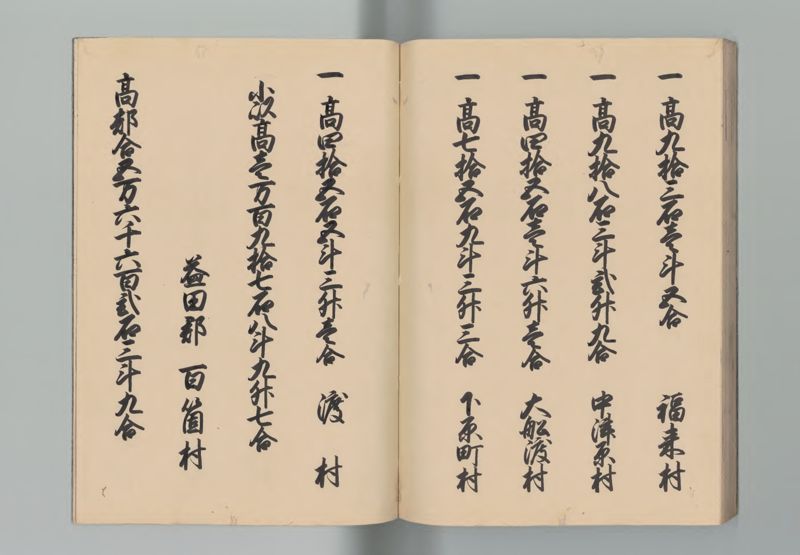 一高九拾三石壱斗五合　福来村
一高九拾八石三斗弐升九合　中津原村
一高四拾五石壱斗六升壱合　大船渡村
一高七拾五石九斗三升三合　下原町村
一高四拾五石五斗三升壱合　渡村
小以高壱万百九拾七石八斗九升七合
益田郡　百箇村
高都合五万六千六百弐石三斗九合